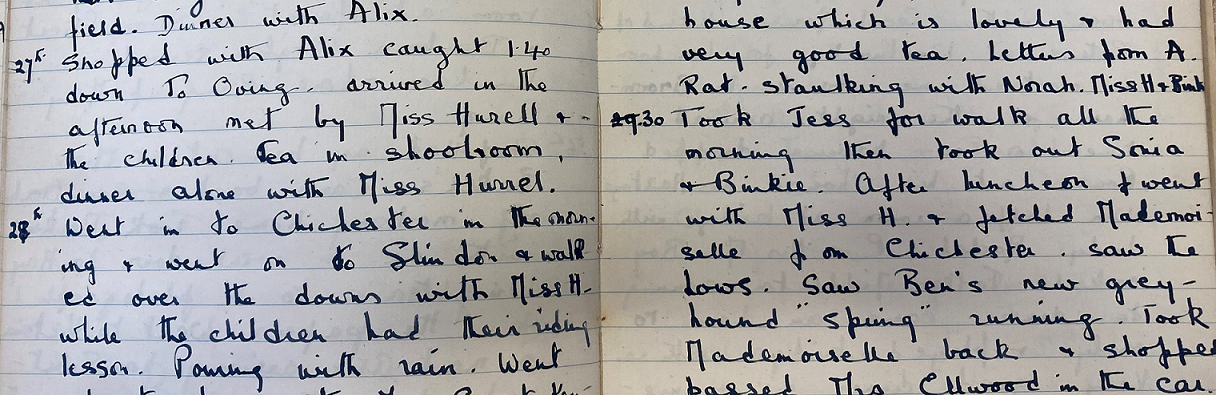 field. Dinner with Alix.
27th Shopped with Alix caught 1.40
down To Oving. arrived in the
afternoon met by Miss Hurell + -
the children. Tea in shoolroom,
dinner alone with Miss Hurrel.
28th Went in to Chichester in the morn-
ing + went on to Slindon + walk
ed over the downs with Miss H-
while the children had their riding
lesson. Pouring with rain. Went
house which is lovely + had
very good tea. Letters from A.
Rat. staulking with Norah. Miss H + Bink
29.30 Took Jess for walk all the
morning then took out Sonia
+ Binkie. After luncheon I went
with Miss H. + fetched Mademoi-
selle from Chichester. saw the
cows. Saw Ben's new grey-
hound "spring" running. Took
Mademoiselle back + shopped
passed Mrs Ellwood in the car.